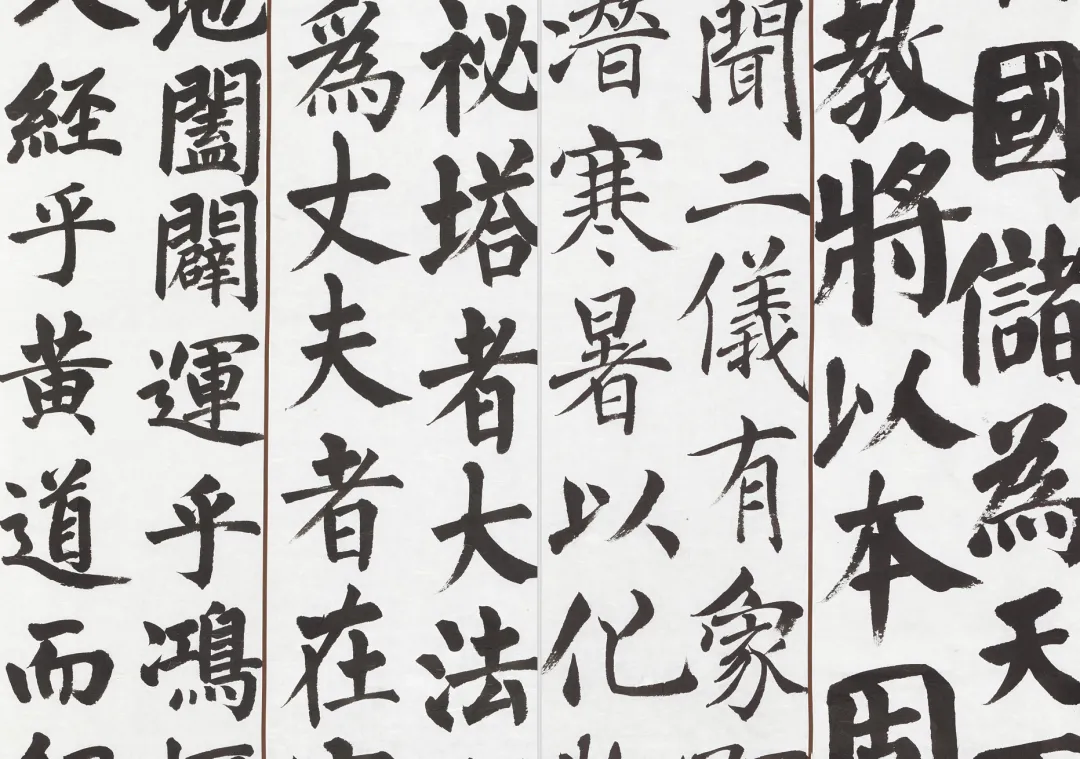 國儲為天
教將以本
聞二儀有象
潛寒暑以化
祕塔者大法
爲丈夫者在
地闔闢運乎鴻
経乎黃道而